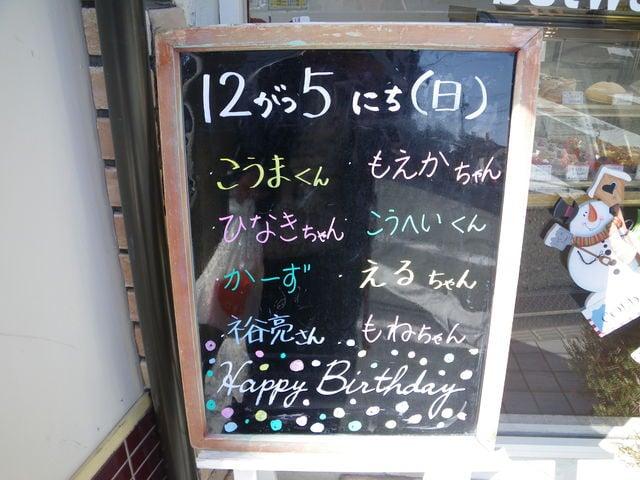 12がつ5にち(日)
こうまくん もえかちゃん
ひなきちゃん こうへいくん
かーず えるちゃん
裕亮さん もねちゃん
Happy Birthday